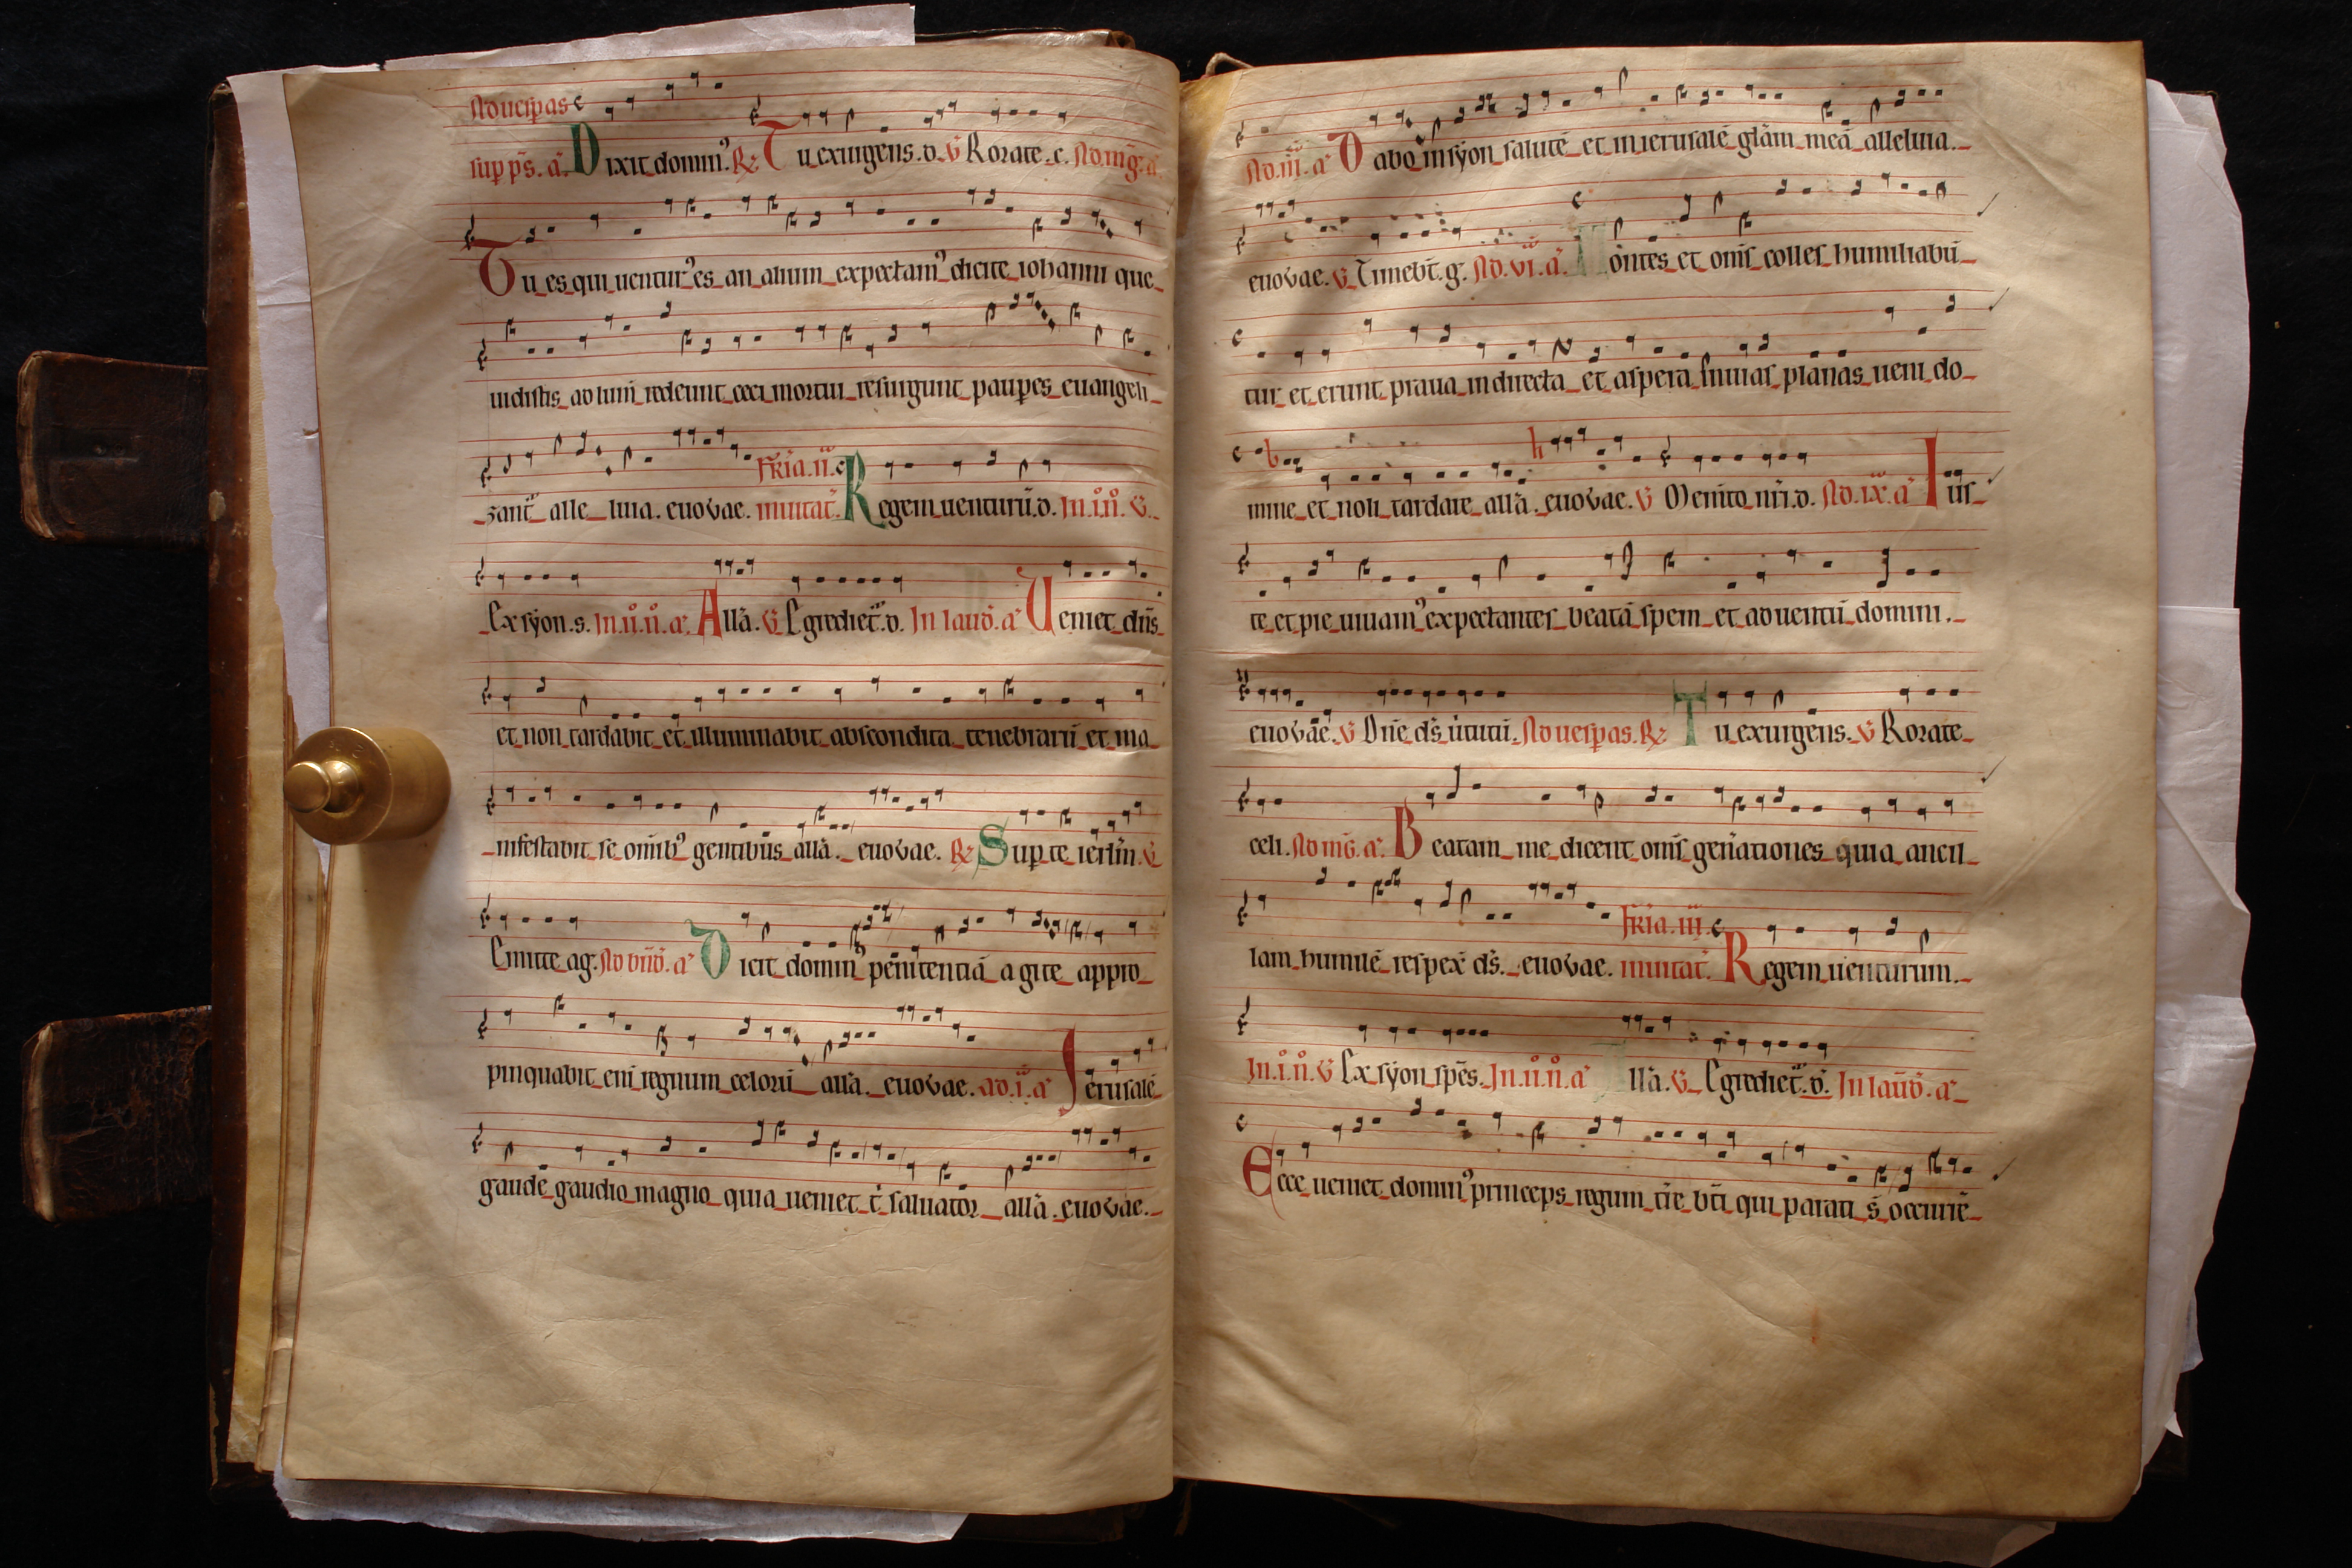 Ad uesꝑas
sup p̄s. a͛. Dixit domin᷒. R̷ Tu exurgens. d. V̄ Rorate. c. Ad. mḡ. a͛.
Tu es qui uentur᷒ es an alium expectam᷒ dicite iohanni que
uidistis ad lum̄ redeunt ceci mortui resurgunt pauꝑes euangeli
zant᷒ alle luia. euovae. Fr̄ia. ii. inuitat᷒. Regem uenturū. d. In. i. n̊. V̄.
Ex syon. s. In. ii. n̊. a͛. All̄a. V̄ Egrediet᷒. d. In laud̄. a͛ Ueniet dn̄s
et non tardabit et illuminabit abscondita tenebrarū et ma
nifestabit se om̄ib᷒ gentibus all̄a. euovae. R̷ Suꝑ te ierl̄m. V̄
Emitte ag. Ad bn̄d̄. a͛ Dicit domin᷒ penitentiā agite appro
pinquabit eni᷒ regnum celorū all̄a. euovae. ad. i. a͛ Ierusalē
gaude gaudio magno quia ueniet t᷒ saluator all̄a. euovae.
Ad. iii. a͛ Dabo in syon salutē et in ierusalē gl̄am meā alleluia.
euovae. V̄ Timeb̄t. g. Ad. vi. a͛. Montes et om̄s colles humiliabū
tur et erunt praua in directa et aspera in uias planas ueni do
mine et noli tardare all̄a. euovae. V̄ Mem̄to nr̄i. d. Ad. ix. a͛ Ius
te et pie uiuam᷒ expectantes beatā spem et aduentū domini.
euovae. V̄ Dn̄e ds̄ uirtutū. Ad uesꝑas. R̷ Tu exurgens. V̄ Rorate
celi. Ad mḡ. a͛. Beatam me dicent om̄s gen̄ationes quia ancil
lam humilē respex̄ ds̄. euovae. Fr̄ia. iii. inuitat᷒. Regem uenturum.
In. i. n̊. V̄ Ex syon spēs. In. ii. n̊. a͛ All̄a. V̄ Egrediet᷒. d̄. In laud̄. a͛
Ecce ueniet domin᷒ princeps regum tr̄e bt̄i qui parati s̄ occurrē